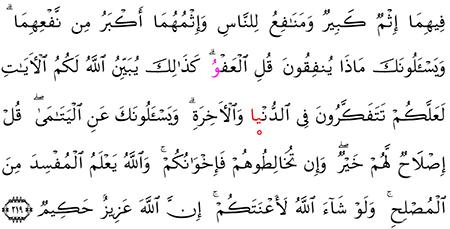 فِيهِمَا إِثْمٌ كَبِيرٌ وَمَنَافِعُ لِلنَّاسِ وَإِثْمُهُمَا أَكْبَرُ مِن نَّفْعِهِمَا ۗ
وَيَسْـَٔلُونَكَ مَاذَا يُنفِقُونَ قُلِ الْعَفْوُ ۗ كَذَٰلِكَ يُبَيِّنُ اللَّهُ لَكُمُ الْآيَاتِ
لَعَلَّكُمْ تَتَفَكَّرُونَ فِى الدُّنْيا وَالْأَخِرَةِ ۗ وَيَسْـَٔلُونَكَ عَنِ الْيَتَٰمَىٰ ۖ قُلْ
إِصْلَاحٌ لَّهُمْ خَيْرٌ ۖ وَإِن تُخَالِطُوهُمْ فَإِخْوَانُكُمْ ۚ وَاللَّهُ يَعْلَمُ الْمُفْسِدَ مِنَ
الْمُصْلِحِ ۚ وَلَوْ شَاءَ اللَّهُ لَأَعْنَتَكُمْ ۚ إِنَّ اللَّهَ عَزِيزٌ حَكِيمٌ ﴿٢١٩﴾